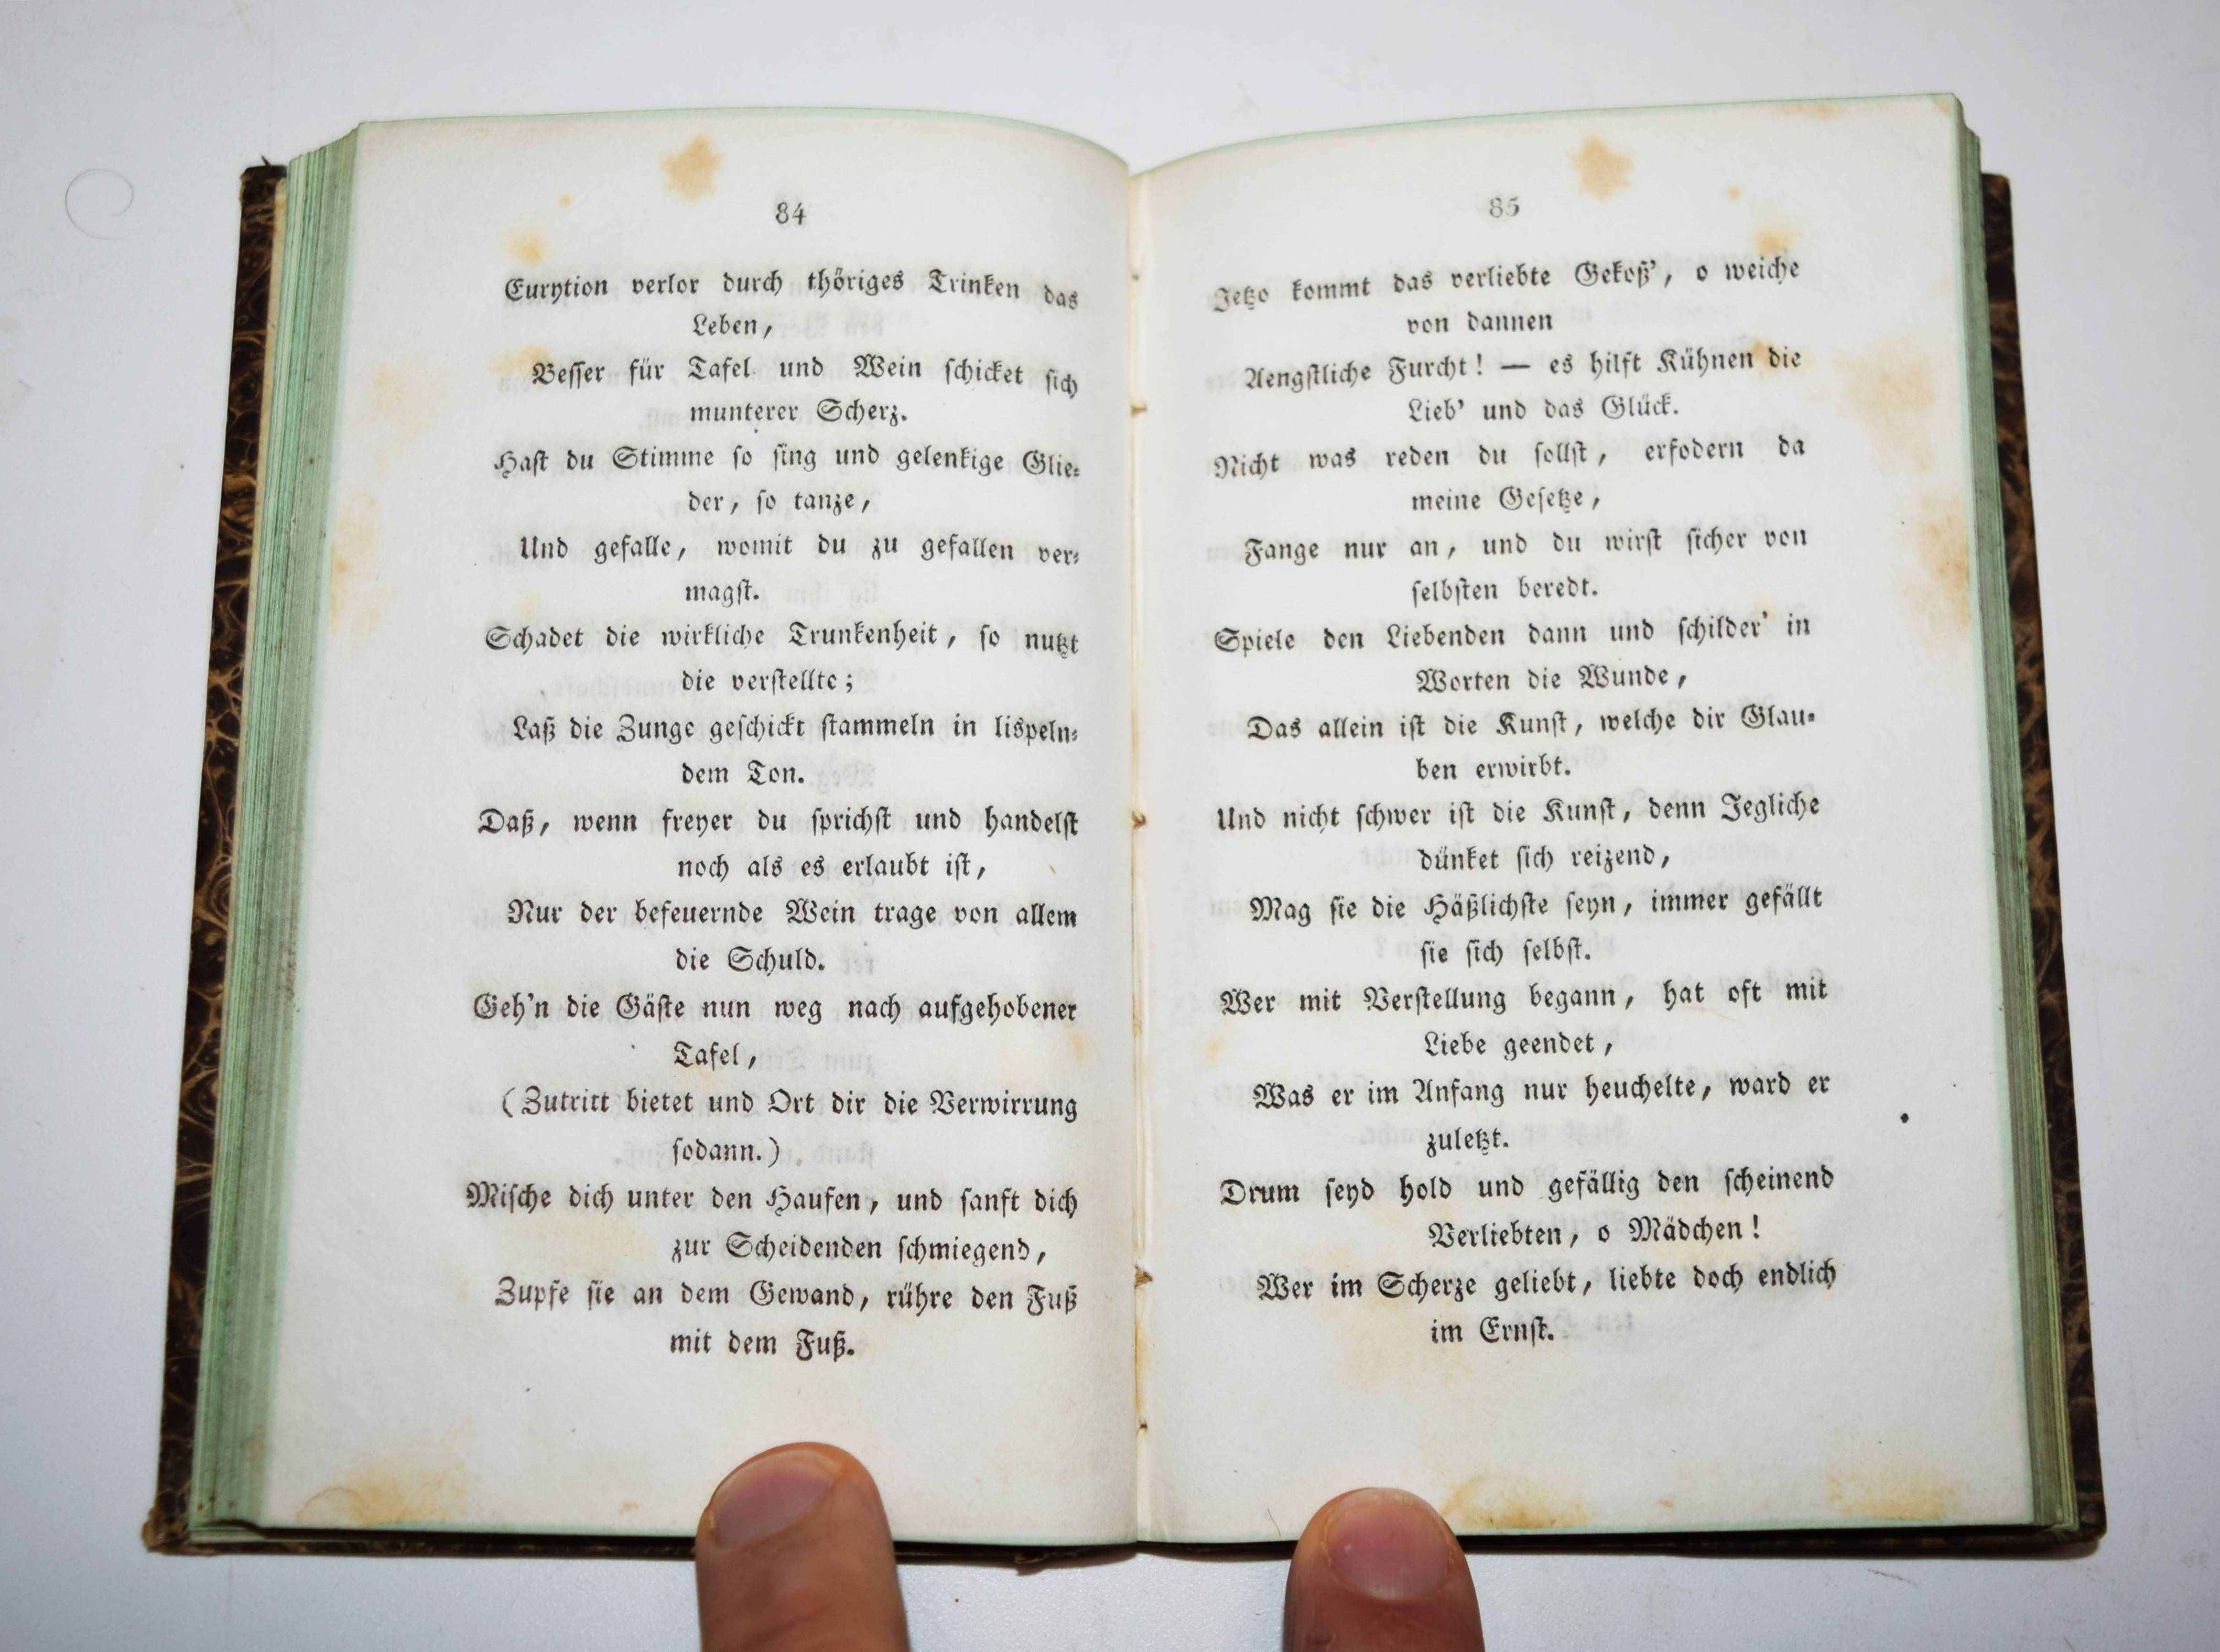 84
Eurytion verlor durch thöriges Trinken das
Leben,
Besser für Tafel und Wein schicket sich
munterer Scherz.
Hast du Stimme so sing und gelenkige Glie-
der, so tanze,
Und gefalle, womit du zu gefallen ver-
magst.
Schadet die wirkliche Trunkenheit, so nutzt
die verstellte;
Laß die Zunge geschickt stammeln in lispeln-
dem Ton.
Daß, wenn freyer du sprichst und handelst
noch als es erlaubt ist,
Nur der befeuernde Wein trage von allem
die Schuld.
Geh'n die Gäste nun weg nach aufgehobener
Tafel,
(Zutritt bietet und Ort dir die Verwirrung
sodann.)
Mische dich unter den Haufen, und sanft dich
zur Scheidenden schmiegend,
Zupfe sie an dem Gewand, rühre den Fuß
mit dem Fuß.
85
Jetzo kommt das verliebte Gekoß', o weiche
von dannen
Aengstliche Furcht! — es hilft Kühnen die
Lieb' und das Glück.
Nicht was reden du sollst, erfodern da
meine Gesetze,
Fange nur an, und du wirst sicher von
selbsten beredt.
Spiele den Liebenden dann und schilder' in
Worten die Wunde,
Das allein ist die Kunst, welche dir Glau-
ben erwirbt.
Und nicht schwer ist die Kunst, denn Jegliche
dünket sich reizend,
Mag sie die Häßlichste seyn, immer gefällt
sie sich selbst.
Wer mit Verstellung begann, hat oft mit
Liebe geendet,
Was er im Anfang nur heuchelte, ward er
zuletzt.
Drum seyd hold und gefällig den scheinend
Verliebten, o Mädchen!
Wer im Scherze geliebt, liebte doch endlich
im Ernst.